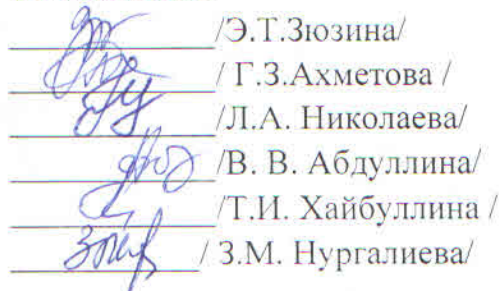 /Э.Т.Зюзина/
/ Г.З.Ахметова /
/Л.А. Николаева/
/В. В. Абдуллина/
/Т.И. Хайбуллина /
/ З.М. Нургалиева/